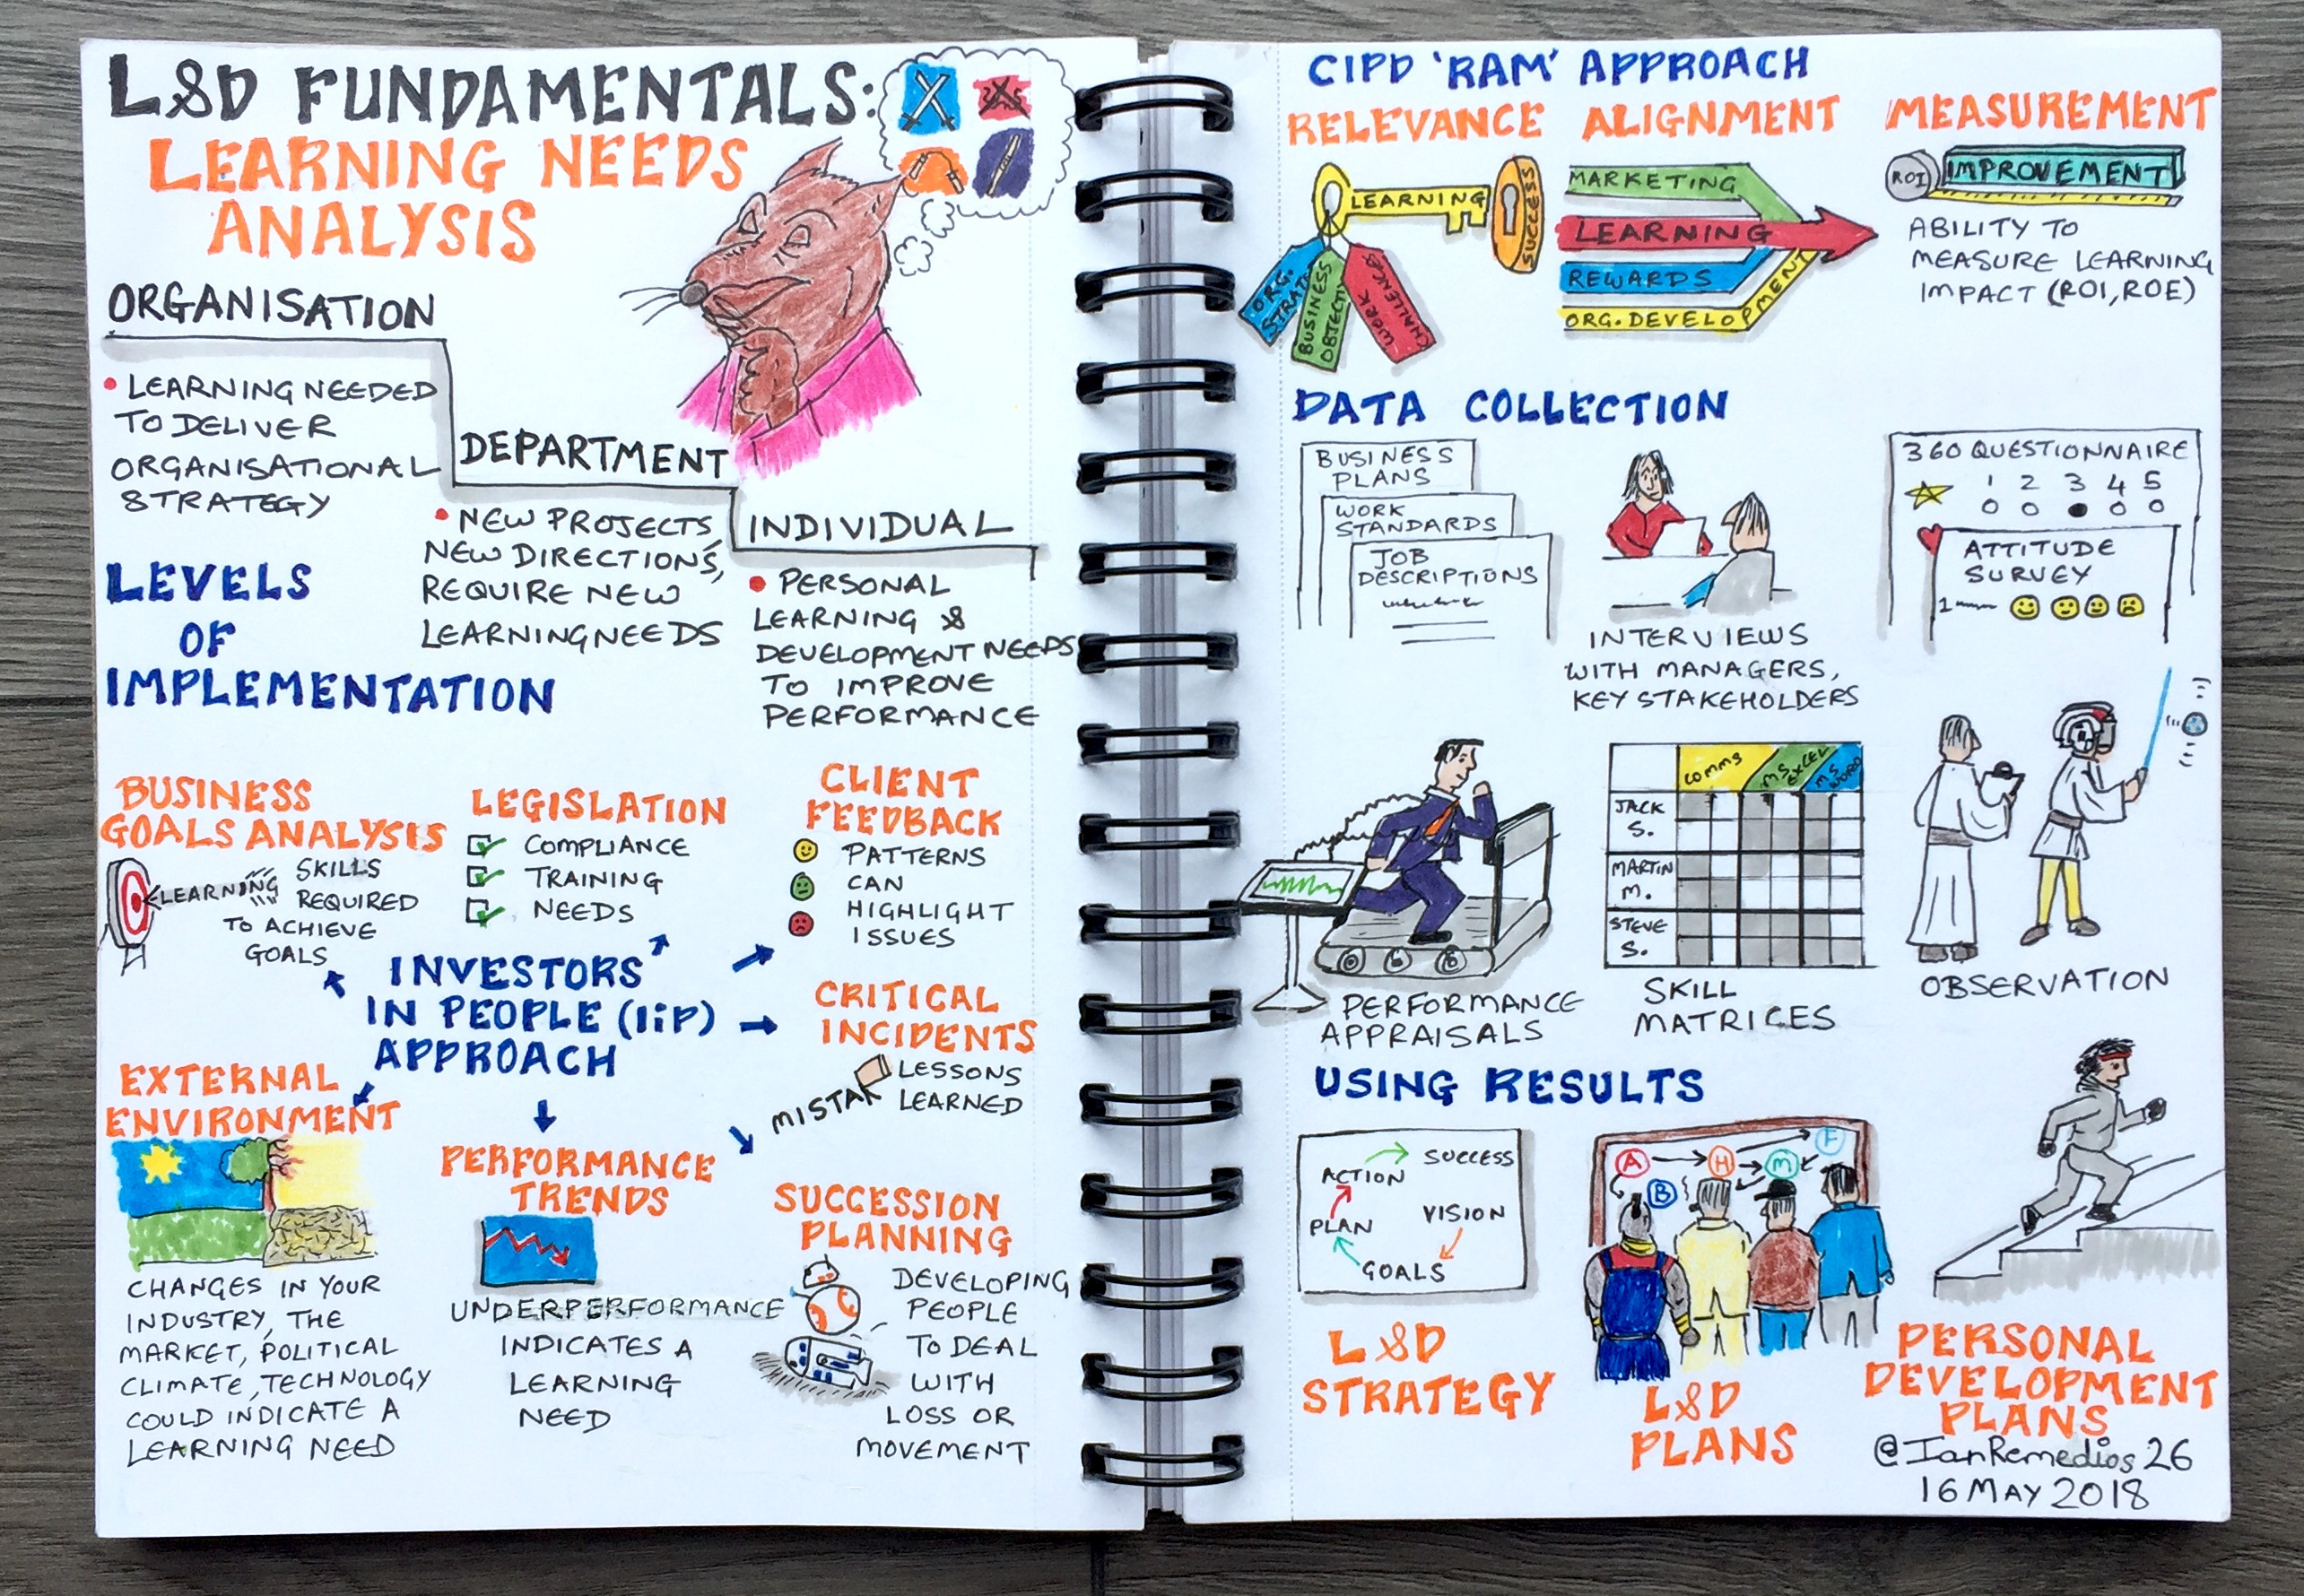 L&D FUNDAMENTALS:
LEARNING NEEDS
ANALYSIS
ORGANISATION
• LEARNING NEEDED
TO DELIVER
ORGANISATIONAL
STRATEGY
DEPARTMENT
• NEW PROJECTS,
NEW DIRECTIONS,
REQUIRE NEW
LEARNING NEEDS
INDIVIDUAL
• PERSONAL
LEARNING &
DEVELOPMENT NEEDS
TO IMPROVE
PERFORMANCE
LEVELS
OF
IMPLEMENTATION
BUSINESS
GOALS ANALYSIS
LEARNING
SKILLS
REQUIRED
TO ACHIEVE
GOALS
LEGISLATION
COMPLIANCE
TRAINING
NEEDS
CLIENT
FEEDBACK
PATTERNS
CAN
HIGHLIGHT
ISSUES
INVESTORS
IN PEOPLE (IiP)
APPROACH
CRITICAL
INCIDENTS
MISTAK
LESSONS
LEARNED
EXTERNAL
ENVIRONMENT
CHANGES IN YOUR
INDUSTRY, THE
MARKET, POLITICAL
CLIMATE, TECHNOLOGY
COULD INDICATE A
LEARNING NEED
PERFORMANCE
TRENDS
UNDERPERFORMANCE
INDICATES A
LEARNING
NEED
SUCCESSION
PLANNING
DEVELOPING
PEOPLE
TO DEAL
WITH
LOSS OR
MOVEMENT
CIPD 'RAM' APPROACH
RELEVANCE
LEARNING
SUCCESS
ORG.
STRAT
BUSINESS
OBJECTI
WORK
CHALLENGES
ALIGNMENT
MARKETING
LEARNING
REWARDS
ORG. DEVELOPMENT
MEASUREMENT
ROI
IMPROVEMENT
ABILITY TO
MEASURE LEARNING
IMPACT (ROI, ROE)
DATA COLLECTION
BUSINESS
PLANS
WORK
STANDARDS
JOB
DESCRIPTIONS
INTERVIEWS
WITH MANAGERS,
KEY STAKEHOLDERS
360 QUESTIONNAIRE
1 2 3 4 5
ATTITUDE
SURVEY
1
PERFORMANCE
APPRAISALS
COMMS
MS EXCEL
MS WORD
JACK
S.
MARTIN
M.
STEVE
S.
SKILL
MATRICES
OBSERVATION
USING RESULTS
ACTION
SUCCESS
PLAN
VISION
GOALS
L&D
STRATEGY
A
H
F
M
B
L&D
PLANS
PERSONAL
DEVELOPMENT
PLANS
@IanRemedios26
16 MAY 2018